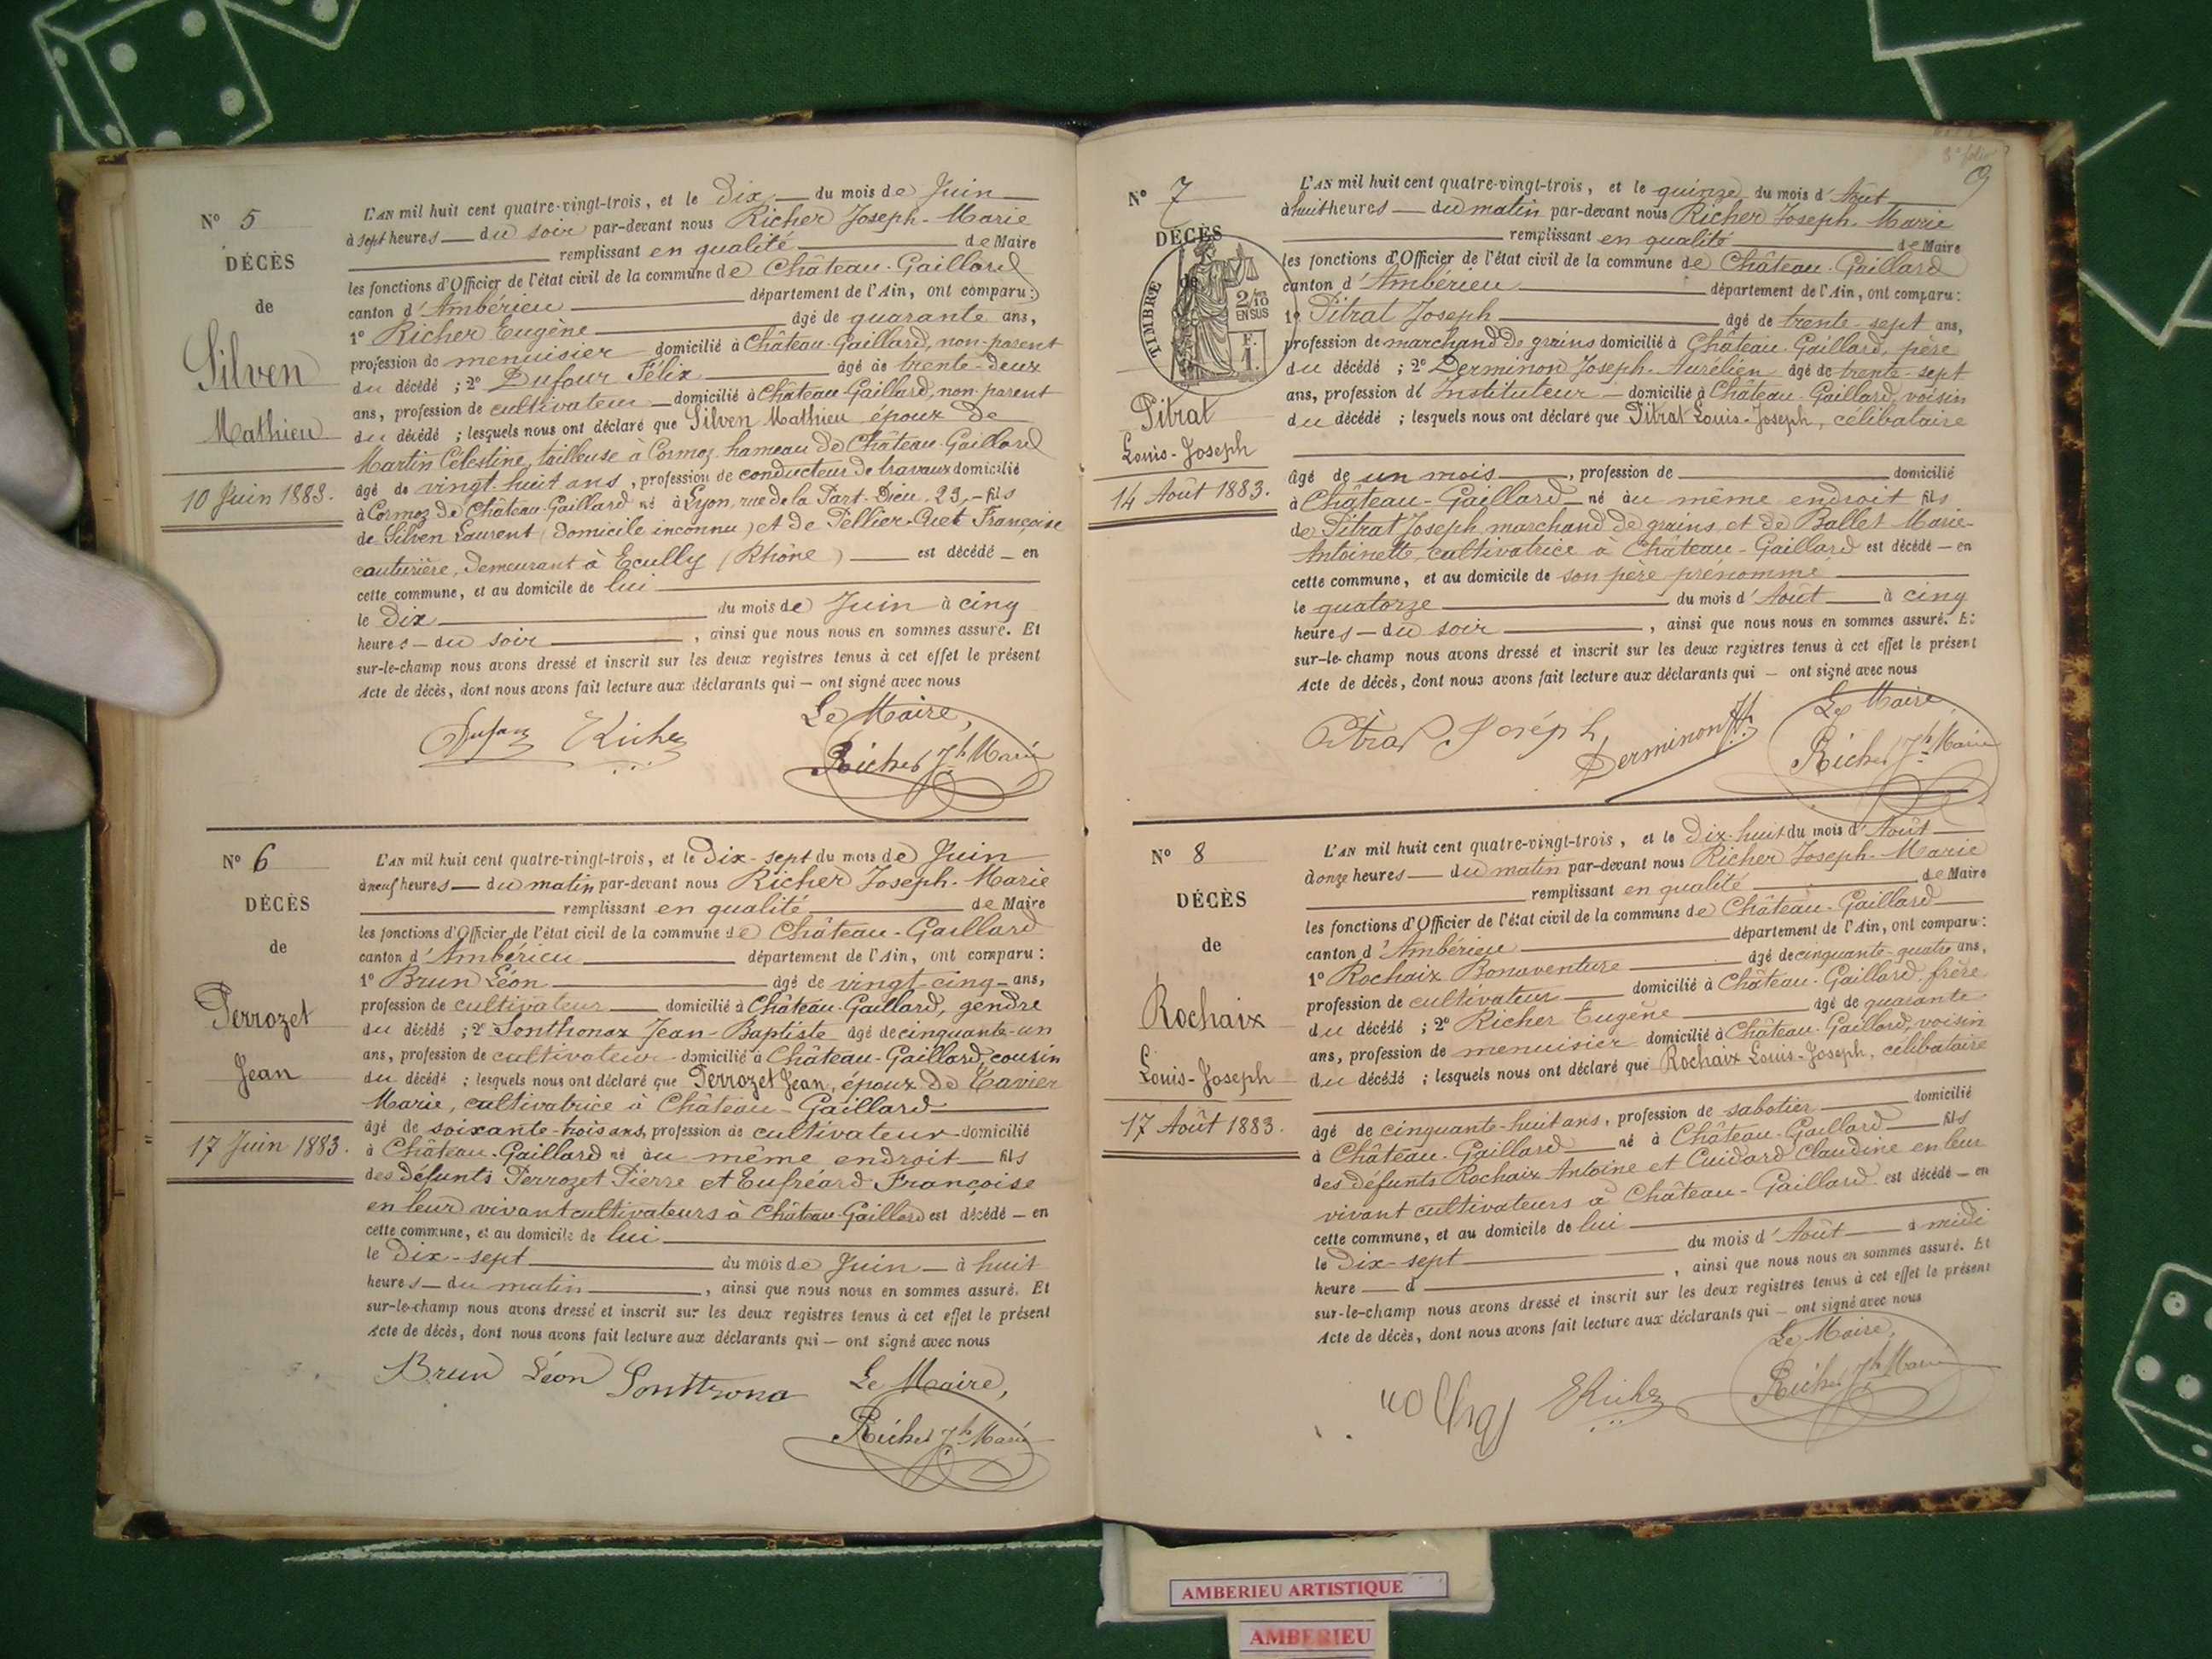 N° 5
DÉCÈS
de
Silven
Mathieu
10 Juin 1883.
L'AN mil huit cent quatre-vingt-trois, et le Dix du mois de Juin
à sept heures du soir par-devant nous Richer Joseph-Marie
remplissant en qualité de Maire
les fonctions d'Officier de l'état civil de la commune de Château-Gaillard
canton d'Ambérieu département de l'Ain, ont comparu:
1° Richer Eugène âgé de quarante ans,
profession de menuisier domicilié à Château-Gaillard, non-parent
du décédé ; 2° Dufour Félix âgé de trente-deux
ans, profession de cultivateur domicilié à Château-Gaillard, non-parent
du décédé ; lesquels nous ont déclaré que Silven Mathieu époux de
Martin Célestine, tailleuse à Cormoz hameau de Château-Gaillard
âgé de vingt-huit ans, profession de conducteur de travaux domicilié
à Cormoz de Château-Gaillard né à Lyon, rue de la Part-Dieu, 29, fils
de Silven Laurent (domicile inconnu) et de Pellier-Cuet Françoise
couturière, demeurant à Ecully (Rhône) est décédé en
cette commune, et au domicile de lui
le Dix du mois de Juin à cinq
heures du soir, ainsi que nous nous en sommes assuré. Et
sur-le-champ nous avons dressé et inscrit sur les deux registres tenus à cet effet le présent
Acte de décès, dont nous avons fait lecture aux déclarants qui — ont signé avec nous
Dufour Richer Le Maire,
Richer Jh Marie
N° 6
DÉCÈS
de
Perrozet
Jean
17 Juin 1883.
L'AN mil huit cent quatre-vingt-trois, et le Dix-sept du mois de Juin
à neuf heures du matin par-devant nous Richer Joseph-Marie
remplissant en qualité de Maire
les fonctions d'Officier de l'état civil de la commune de Château-Gaillard
canton d'Ambérieu département de l'Ain, ont comparu:
1° Brun Léon âgé de vingt-cinq ans,
profession de cultivateur domicilié à Château-Gaillard, gendre
du décédé ; 2° Sonthonax Jean-Baptiste âgé de cinquante-un
ans, profession de cultivateur domicilié à Château-Gaillard, cousin
du décédé ; lesquels nous ont déclaré que Perrozet Jean, époux de Tavier
Marie, cultivatrice à Château-Gaillard
âgé de soixante-trois ans, profession de cultivateur domicilié
à Château-Gaillard né au même endroit fils
des défunts Perrozet Pierre et Eufréard Françoise
en leur vivant cultivateurs à Château-Gaillard est décédé — en
cette commune, et au domicile de lui
le Dix-sept du mois de Juin à huit
heures du matin, ainsi que nous nous en sommes assuré. Et
sur-le-champ nous avons dressé et inscrit sur les deux registres tenus à cet effet le présent
Acte de décès, dont nous avons fait lecture aux déclarants qui — ont signé avec nous
Brun Léon Sonthona Le Maire,
Richer Jh Marie
9
N° 7
DÉCÈS
de
TIMBRE
2/10 EN SUS
F. 1.
Pitrat
Louis-Joseph
14 Août 1883.
L'AN mil huit cent quatre-vingt-trois, et le quinze du mois d'Août
à huit heures du matin par-devant nous Richer Joseph-Marie
remplissant en qualité de Maire
les fonctions d'Officier de l'état civil de la commune de Château-Gaillard
canton d'Ambérieu département de l'Ain, ont comparu:
1° Pitrat Joseph âgé de trente-sept ans,
profession de marchand de grains domicilié à Château-Gaillard, père
du décédé ; 2° Derminon Joseph-Aurélien âgé de trente-sept
ans, profession d'Instituteur domicilié à Château-Gaillard, voisin
du décédé ; lesquels nous ont déclaré que Pitrat Louis-Joseph, célibataire
âgé de un mois, profession de domicilié
à Château-Gaillard né au même endroit fils
de Pitrat Joseph, marchand de grains et de Ballet Marie-
Antoinette, cultivatrice à Château-Gaillard est décédé — en
cette commune, et au domicile de son père prénommé
le quatorze du mois d'Août à cinq
heures du soir, ainsi que nous nous en sommes assuré. Et
sur-le-champ nous avons dressé et inscrit sur les deux registres tenus à cet effet le présent
Acte de décès, dont nous avons fait lecture aux déclarants qui — ont signé avec nous
Pitrat Joséph Derminon Le Maire
Richer Jh Marie
N° 8
DÉCÈS
de
Rochaix
Louis-Joseph
17 Août 1883.
L'AN mil huit cent quatre-vingt-trois, et le Dix-huit du mois d'Août
à onze heures du matin par-devant nous Richer Joseph-Marie
remplissant en qualité de Maire
les fonctions d'Officier de l'état civil de la commune de Château-Gaillard
canton d'Ambérieu département de l'Ain, ont comparu:
1° Rochaix Bonaventure âgé de cinquante-quatre ans,
profession de cultivateur domicilié à Château-Gaillard frère
du décédé ; 2° Richer Eugène âgé de quarante
ans, profession de menuisier domicilié à Château-Gaillard, voisin
du décédé ; lesquels nous ont déclaré que Rochaix Louis-Joseph, célibataire
âgé de cinquante-huit ans, profession de sabotier domicilié
à Château-Gaillard né à Château-Gaillard fils
des défunts Rochaix Antoine et Cuidard Claudine en leur
vivant cultivateurs à Château-Gaillard est décédé — en
cette commune, et au domicile de lui
le Dix-sept du mois d'Août à midi
heure d, ainsi que nous nous en sommes assuré. Et
sur-le-champ nous avons dressé et inscrit sur les deux registres tenus à cet effet le présent
Acte de décès, dont nous avons fait lecture aux déclarants qui — ont signé avec nous
ERicher Le Maire,
Richer Jh Marie
AMBERIEU ARTISTIQUE
AMBERIEU